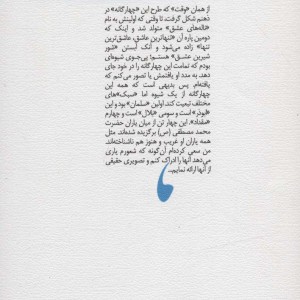 از همان «وقت» که طرح این «چهارگانه» در
ذهنم شکل گرفت، تا وقتی که اولینش به نام
«ناله‌های عشق» متولد شد و اینک که
دومین پاره آن «تنهاترین عاشق، عاشق‌ترین
تنها» زاده می‌شود و آنک آبستن «شور
شیرین عشق» هستم؛ پی‌جوی شیوه‌ای
بودم که تمامت این چهارگانه را در خود جای
دهد. به مدد او یافتمش یا تصور می‌کنم که
یافته‌ام. پس بدیهی است که همه این
چهارگانه از یک شیوه اما «سبک»های
مختلف تبعیت کند. اولین «سلمان» بود و این
«ابوذر» است و سومی «بلال» است و چهارم
«مقداد». این چهار تن از میان یاران حضرت
محمد مصطفی (ص) برگزیده شده‌اند. مثل
همه یاران او غریب و هنوز هم ناشناخته‌اند.
من سعی کرده‌ام آن‌گونه که شعورم یاری
می‌دهد آنها را ادراک کنم و تصویری حقیقی
از آنها ارائه نمایم...